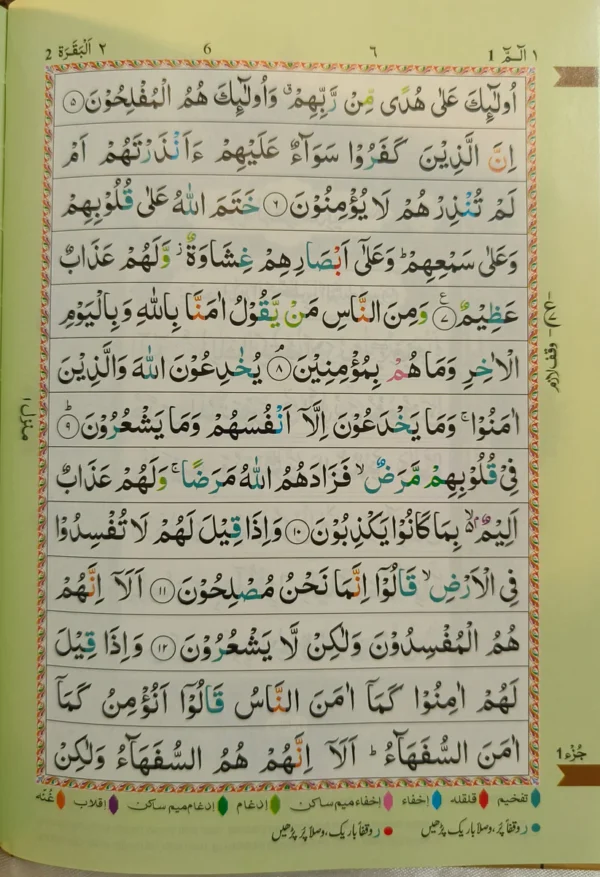 ١ الٓمّٓ 1
٦
6
٢ اَلْبَقَرَة 2
اُولٰٓئِكَ عَلٰى هُدًى مِّنْ رَّبِّهِمْ ۗ وَاُولٰٓئِكَ هُمُ الْمُفْلِحُوْنَ ﴿۵﴾
اِنَّ الَّذِيْنَ كَفَرُوْا سَوَآءٌ عَلَيْهِمْ ءَاَنْذَرْتَهُمْ اَمْ
لَمْ تُنْذِرْهُمْ لَا يُؤْمِنُوْنَ ﴿۶﴾ خَتَمَ اللّٰهُ عَلٰى قُلُوْبِهِمْ
وَعَلٰى سَمْعِهِمْ ؕ وَعَلٰٓى اَبْصَارِهِمْ غِشَاوَةٌ ۫ وَّلَهُمْ عَذَابٌ
عَظِيْمٌ ﴿۷﴾ ع وَمِنَ النَّاسِ مَنْ يَّقُوْلُ اٰمَنَّا بِاللّٰهِ وَبِالْيَوْمِ
الْاٰخِرِ وَمَا هُمْ بِمُؤْمِنِيْنَ ۘ ﴿۸﴾ يُخٰدِعُوْنَ اللّٰهَ وَالَّذِيْنَ
اٰمَنُوْا ۚ وَمَا يَخْدَعُوْنَ اِلَّآ اَنْفُسَهُمْ وَمَا يَشْعُرُوْنَ ؕ ﴿۹﴾
فِيْ قُلُوْبِهِمْ مَّرَضٌ ۙ فَزَادَهُمُ اللّٰهُ مَرَضًا ۚ وَلَهُمْ عَذَابٌ
اَلِيْمٌ ۢ ۙ بِمَا كَانُوْا يَكْذِبُوْنَ ﴿۱۰﴾ وَاِذَا قِيْلَ لَهُمْ لَا تُفْسِدُوْا
فِي الْاَرْضِ ۙ قَالُوْٓا اِنَّمَا نَحْنُ مُصْلِحُوْنَ ﴿۱۱﴾ اَلَآ اِنَّهُمْ
هُمُ الْمُفْسِدُوْنَ وَلٰكِنْ لَّا يَشْعُرُوْنَ ﴿۱۲﴾ وَاِذَا قِيْلَ
لَهُمْ اٰمِنُوْا كَمَآ اٰمَنَ النَّاسُ قَالُوْٓا اَنُؤْمِنُ كَمَآ
اٰمَنَ السُّفَهَآءُ ؕ اَلَآ اِنَّهُمْ هُمُ السُّفَهَآءُ وَلٰكِنْ
وقف لازم
منزل ١
جُزْء 1
تفخیم قلقله إخفاء إخفاء میم ساکن إدغام إدغام میم ساکن إقلاب غُنّه
ر وقفاً پُر، وصلاً باریک پڑھیں ر وقفاً باریک، وصلاً پُر پڑھیں